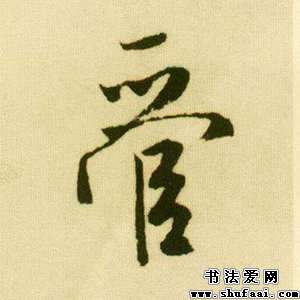 管
书法爱网
www.shufaai.com